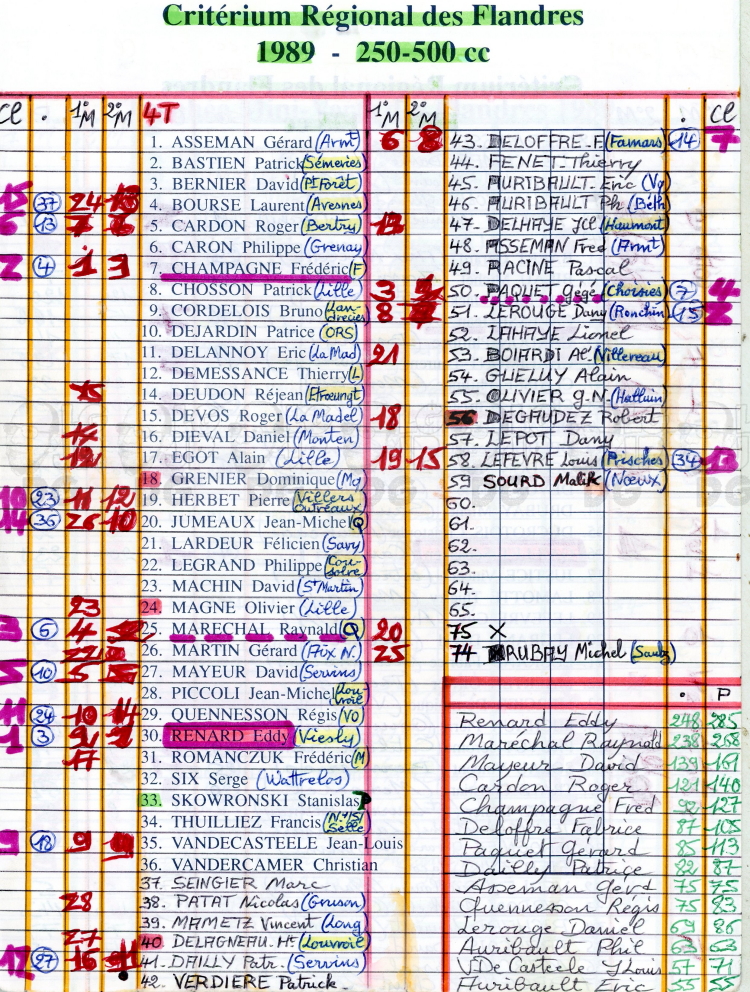 Critérium Régional des Flandres
1989 - 250-500 cc
Cl . 1°M 2°M 4T 1°M 2°M . Cl
1. ASSEMAN Gérard (Armt)
2. BASTIEN Patrick Sémeries
3. BERNIER David (Pt Forêt)
15 37 24 4. BOURSE Laurent (Avesnes)
6 13 7 6 5. CARDON Roger (Bertry)
6. CARON Philippe (Grenay)
2 4 1 3 7. CHAMPAGNE Frédéric (F
8. CHOSSON Patrick (Lille)
9. CORDELOIS Bruno (Landrecies)
10. DEJARDIN Patrice (ORS)
11. DELANNOY Eric (La Mad)
12. DEMESSANCE Thierry (L
14. DEUDON Réjean (Etroeungt
15. DEVOS Roger (La Madel)
16. DIEVAL Daniel (Monten)
17. EGOT Alain (Lille)
18. GRENIER Dominique (Mq)
10 23 11 12 19. HERBET Pierre (Villers Outréaux
14 36 26 10 20. JUMEAUX Jean-Michel Q
21. LARDEUR Félicien (Savy)
22. LEGRAND Philippe (Cousolre)
23. MACHIN David (St Martin)
23 24. MAGNE Olivier (Lille)
3 6 4 25. MARECHAL Raynald (Q)
26. MARTIN Gérard (Aix N.)
5 10 5 27. MAYEUR David (Servins)
28. PICCOLI Jean-Michel (Louvroil
11 24 10 29. QUENNESSON Régis (VO)
1 3 30. RENARD Eddy (Viesly)
17 31. ROMANCZUK Frédéric (M
32. SIX Serge (Wattrelos)
33. SKOWRONSKI Stanislas P
34. THUILLIEZ Francis (N./S/ Selle
9 18 9 35. VANDECASTEELE Jean-Louis
36. VANDERCAMER Christian
37. SEINGIER Marc
28 38. PATAT Nicolas (Gruson)
39. MAMETZ Vincent (Long)
27 40 DELAGNEAU. H. (Louvroil)
27 16 41. DAILLY Patr. (Servins)
42. VERDIERE Patrick.
6 8 43. DELOFFRE.F (Famars) 14 7
44. FENET Thierry
45. AURIBAULT Eric (Vq)
46. AURIBAULT Ph (Béth)
47. DELHAYE Jcl (Haumont
48. ASSEMAN Fred (Armt)
49. RACINE Pascal
3 50. PAQUET Gégé (Choisies) 7 4
8 51. LEROUGE Dany (Ronchin) 15
52. LAHAYE Lionel
21 53. BOIARDI Al. (Villereau)
54. GUELUY Alain
55. OLIVIER g.N. (Halluin)
18 56 DEGAUDEZ Robert
57. LEPOT Dany
19 15 58. LEFEVRE Louis (Prisches) 34 13
59 SOURD Malik (Noeux)
60.
61.
62.
63.
64.
65.
20 75 X
25 74 RUBAY Michel (Saulz)
. P
Renard Eddy 248 285
Maréchal Raynald 238 268
Mayeur David 139 161
Cardon Roger 121 140
Champagne Fred 92 127
Deloffre Fabrice 87 105
Paquet Gérard 85 113
Dailly Patrice 82 87
Asseman Gérd 75 75
Quennesson Régis 75 83
Lerouge Daniel 69 86
Auribault Phil 63 63
VDe Casteele JLouis 57 71
Auribault Eric 55 55